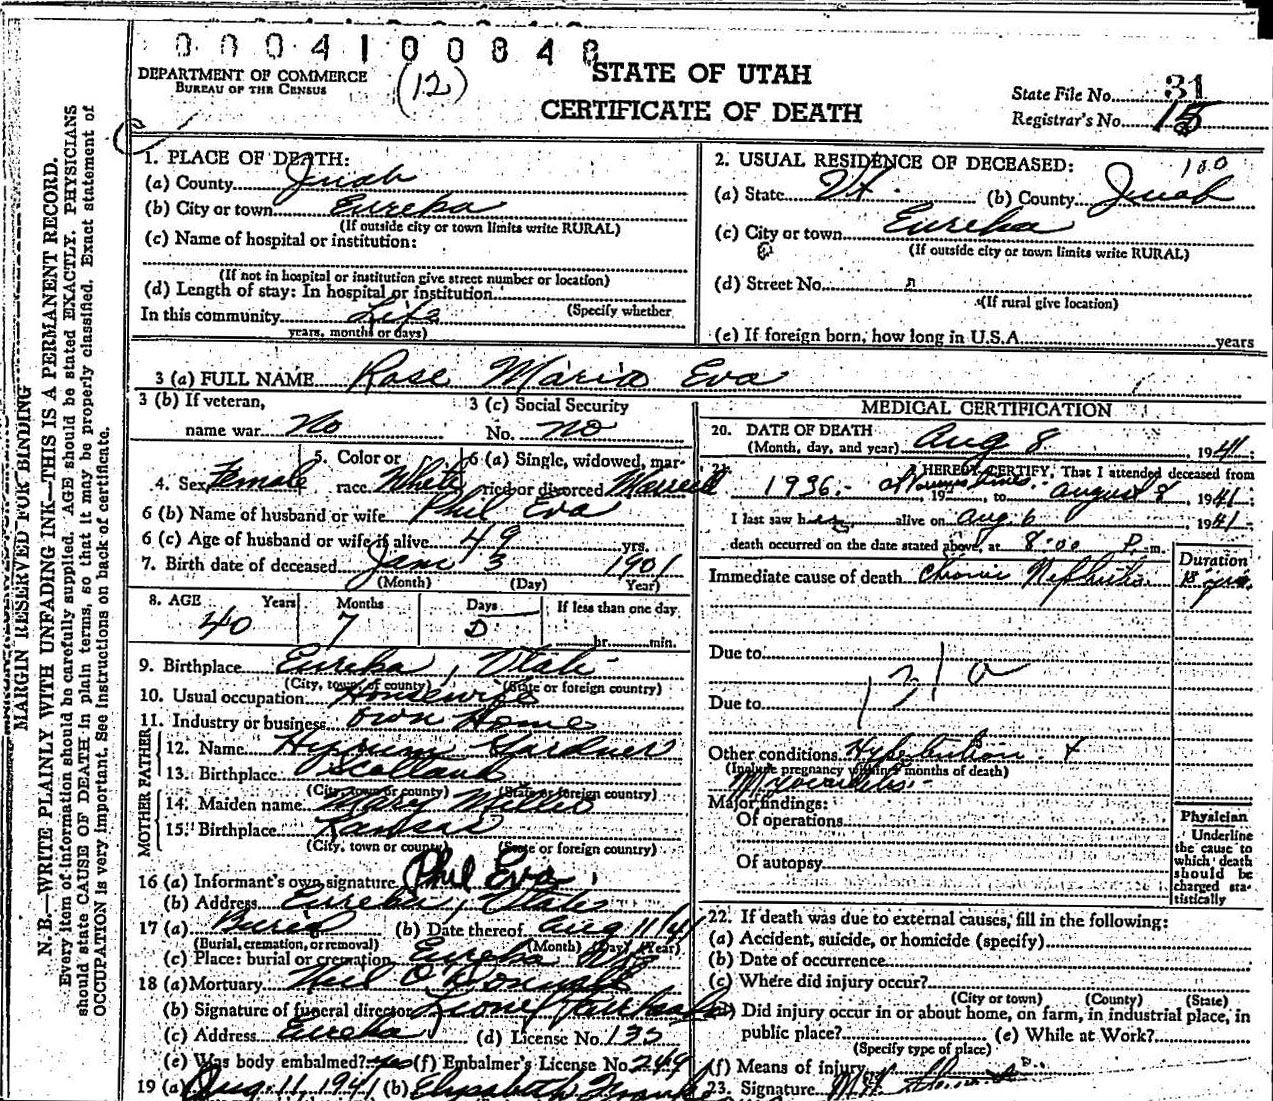 0004100848
DEPARTMENT OF COMMERCE
BUREAU OF THE CENSUS
(12)
STATE OF UTAH
CERTIFICATE OF DEATH
State File No. 31
Registrar's No. 15
MARGIN RESERVED FOR BINDING
N. B.—WRITE PLAINLY WITH UNFADING INK—THIS IS A PERMANENT RECORD.
Every item of information should be carefully supplied. AGE should be stated EXACTLY. PHYSICIANS
should state CAUSE OF DEATH in plain terms, so that it may be properly classified. Exact statement of
OCCUPATION is very important. See instructions on back of certificate.
1. PLACE OF DEATH:
(a) County Juab
(b) City or town Eureka
(If outside city or town limits write RURAL)
(c) Name of hospital or institution:
(If not in hospital or institution give street number or location)
(d) Length of stay: In hospital or institution
(Specify whether
In this community Life
years, months or days)
2. USUAL RESIDENCE OF DECEASED: 100
(a) State Ut. (b) County Juab
(c) City or town Eureka
(If outside city or town limits write RURAL)
(d) Street No. "
(If rural give location)
(e) If foreign born, how long in U.S.A. years
3 (a) FULL NAME Rose Maria Eva
3 (b) If veteran, 3 (c) Social Security
name war No No. no
4. Sex Female 5. Color or race White 6 (a) Single, widowed, married or divorced Married
6 (b) Name of husband or wife Phil Eva
6 (c) Age of husband or wife if alive 49 yrs.
7. Birth date of deceased Jan 3 1901
(Month) (Day) Year)
8. AGE Years Months Days If less than one day
40 7 hr. min.
9. Birthplace Eureka, Utah
(City, town, or county) (State or foreign country)
10. Usual occupation Housewife
11. Industry or business own Home
FATHER
12. Name Gardner
13. Birthplace Scotland
(City, town or county) (State or foreign country)
MOTHER
14. Maiden name Mary
15. Birthplace Kansas
(City, town or county) (State or foreign country)
16 (a) Informant's own signature Phil Eva
(b) Address Eureka, Utah
17 (a) Burial (b) Date thereof Aug 11/41
(Burial, cremation, or removal) (Month) (Day) (Year)
(c) Place: burial or cremation Eureka
18 (a) Mortuary O'Donnell
(b) Signature of funeral director Lionel
(c) Address Eureka (d) License No. 135
(e) Was body embalmed? yes (f) Embalmer's License No. 249
19 (a) Aug. 11, 1941 (b) Elizabeth
MEDICAL CERTIFICATION
20. DATE OF DEATH
(Month, day, and year) Aug 8 1941;
21. I HEREBY CERTIFY, That I attended deceased from
1936 - at various times 19 , to August 8, 1941;
I last saw her alive on Aug 6, 1941;
death occurred on the date stated above, at 8:00 P. m.
Duration
Immediate cause of death Chronic Nephritis
Due to
131a
Due to
Other conditions Hypertension +
(Include pregnancy within 3 months of death)
Myocarditis
Major findings:
Of operations
Of autopsy
Physician
Underline
the cause to
which death
should be
charged sta-
tistically
22. If death was due to external causes, fill in the following:
(a) Accident, suicide, or homicide (specify)
(b) Date of occurrence
(c) Where did injury occur?
(City or town) (County) (State)
(d) Did injury occur in or about home, on farm, in industrial place, in
public place? (e) While at Work?
(Specify type of place)
(f) Means of injury
23. Signature